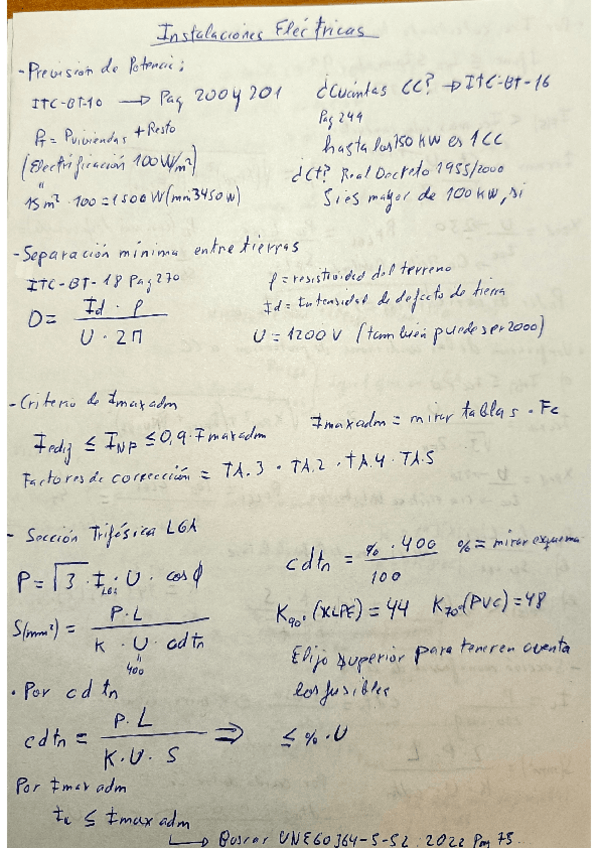 Instalaciones Eléctricas
- Previsión de Potencia:
ITC-BT-10 → Pag 200 y 201
PT = Pviviendas + Resto
(Electrificación 100W/m²)
15m² · 100 = 1500W (min 3450W)
¿Cuántas CC? → ITC-BT-16
Pag 244
hasta los 150 kW es 1 CC
¿Ct? Real Decreto 1955/2000
Si es mayor de 100 kW, si
- Separación mínima entre tierras
ITC-BT-18 Pag 270
D = Id · ρ / U · 2π
ρ = resistividad del terreno
Id = Intensidad de defecto de tierra
U = 1200 V (también puede ser 2000)
- Criterio de Imaxadm
Iediz ≤ INP ≤ 0,9 · Imaxadm
Imaxadm = mirar tablas · Fc
Factores de corrección = TA.3 · TA.2 · TA.4 · TA.5
- Sección Trifásica LGA
P = √3 · ILGA · U · cos φ
S(mm²) = P · L / K · U · cdtn
400
cdtn = % · 400 / 100
% = mirar esquema
K90º (XLPE) = 44 K70º (PVC) = 48
Elijo superior para tener en cuenta
los fusibles
· Por cdtn
cdtn = P · L / K · U · S ⇒ ≤ % · U
Por Imax adm
≤ Imax adm
→ Buscar UNE 60364-5-52 : 2022 Pag 75